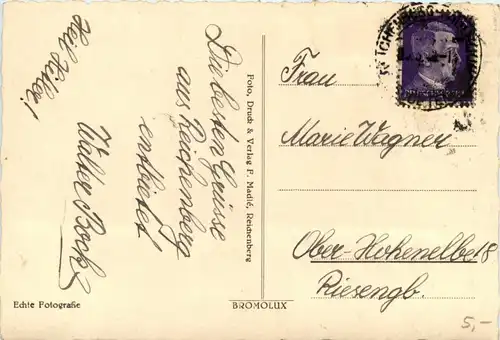 Die besten Grüsse
aus Reichenberg
entbietet
Walter Bock
Heil Hitler!
Foto, Druck & Verlag F. Madlé, Reichenberg
Frau
Marie Wagner
Ober-Hohenelbe
Riesengb.
Echte Fotografie
BROMOLUX
5,-